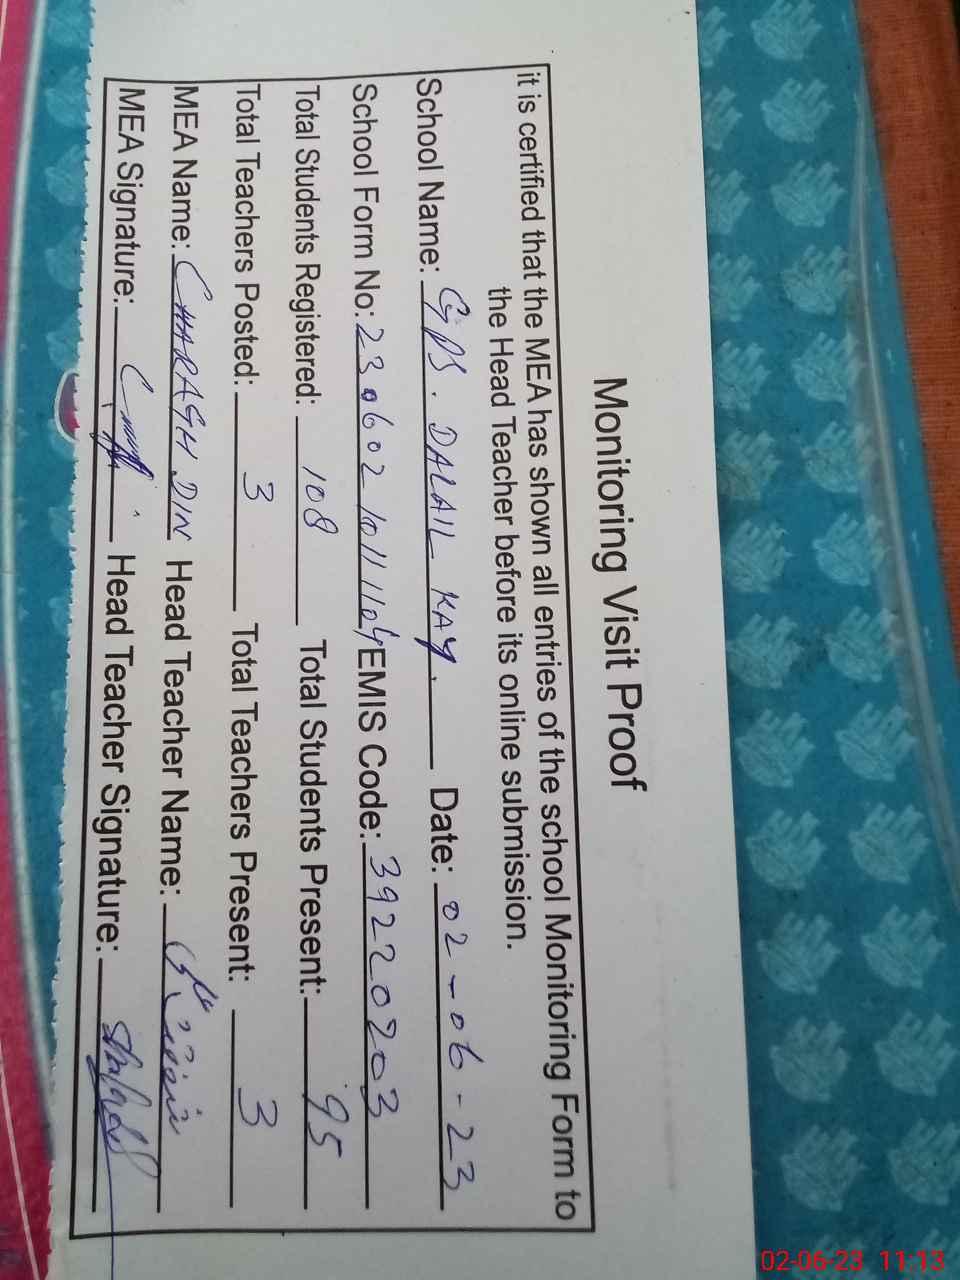 Monitoring Visit Proof
it is certified that the MEA has shown all entries of the school Monitoring Form to
the Head Teacher before its online submission.
School Name: GPS. DALAIL KAY. Date: 02-06-23
School Form No: EMIS Code: 39220203
Total Students Registered: 108 Total Students Present: 95
Total Teachers Posted: 3 Total Teachers Present: 3
MEA Name: CHARAGH DIN Head Teacher Name:
MEA Signature: Head Teacher Signature:
02-06-23 11:13